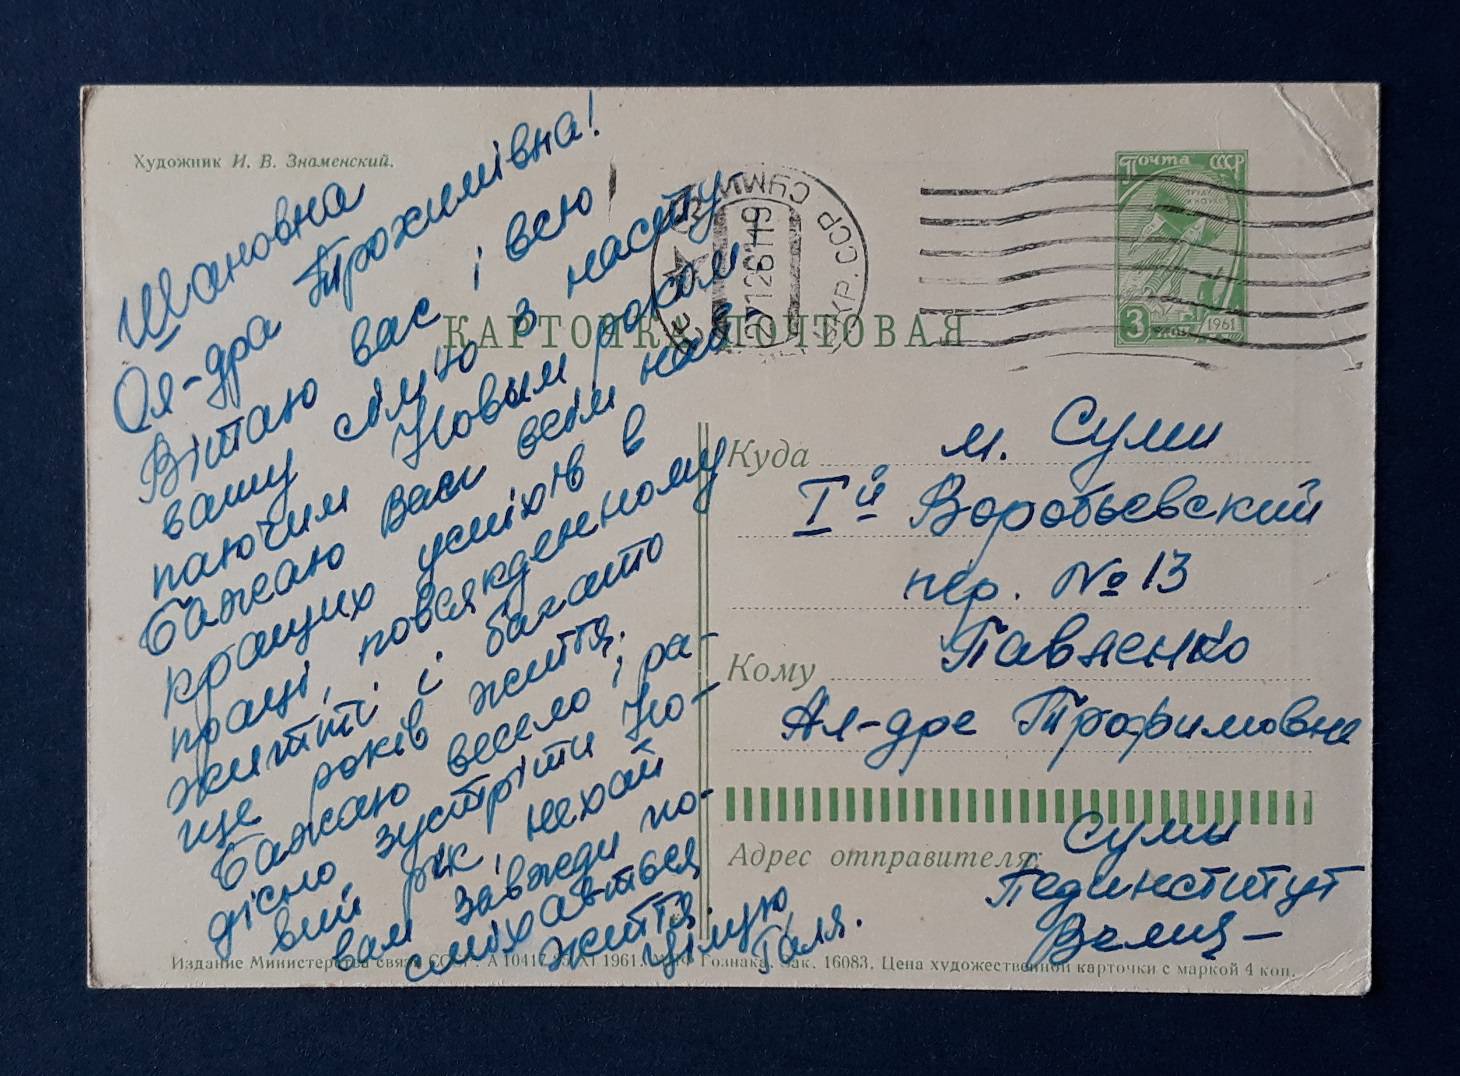 Художник И. В. Знаменский.
Шановна
Ол-дра Трохимівна!
Вітаю вас і всю
вашу сім'ю з насту-
паючим Новым роком
Бажаю Вам всім най
кращих успіхів в
праці, повсякденному
житті і багато
ще років життя.
Бажаю весело і ра-
дісно зустріти Но-
вий рік, нехай
вам завжди по-
сміхається
життя.
Цілую
Галя.
КАРТОЧКА ПОЧТОВАЯ
СУМИ УКР. ССР
271261 19
Почта СССР
3 коп 1961
Куда м. Суми
Iй Воробьевский
пер. № 13
Кому Павленко
Ал-дре Трофимовне
Адрес отправителя:
Сумы
Пединститут
Издание Министерства связи СССР. А 10417. XI 1961. Гознака. Зак. 16083. Цена художественной карточки с маркой 4 коп.